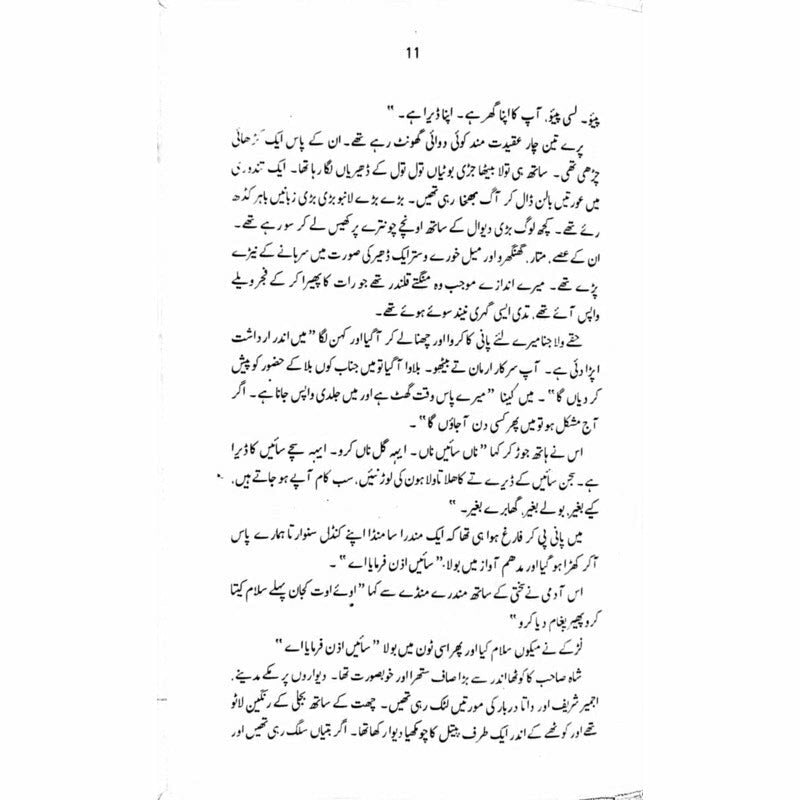 11
پیئو۔ لسی پیئو، آپ کا اپنا گھر ہے۔ اپنا ڈیرا ہے۔ "
پرے تین چار عقیدت مند کوئی دوائی گھونٹ رہے تھے۔ ان کے پاس ایک کڑھائی
چڑھی تھی۔ ساتھ ہی تولا بیٹھا جڑی بوٹیاں تول تول کے ڈھیریاں لگا رہا تھا۔ ایک تندوری
میں عورتیں بالن ڈال کر آگ بھخا رہی تھیں۔ بڑے بڑے لانبو بڑی بڑی زبانیں باہر کڈھ
رئے تھے۔ کچھ لوگ بڑی دیوال کے ساتھ اونچے چونترے پر کھیس لے کر سو رہے تھے۔
ان کے عصے، متار، گھنگھرو اور میل خورے وستر ایک ڈھیر کی صورت میں سرہانے کے نیڑے
پڑے تھے۔ میرے اندازے موجب وہ منگتے قلندر تھے جو رات کا پھیرا کر کے فجر ویلے
واپس آئے تھے، تدی ایسی گہری نیند سوئے ہوئے تھے۔
حقے ولا جنا میرے لئے پانی کا کروا اور چھنا لے کر آگیا اور کہن لگا " میں اندر ارداشت
اپڑا دئی ہے۔ آپ سرکار ارمان تے بیٹھو۔ بلاوا آگیا تو میں جناب کوں بلا کے حضور کو پیش
کر دیاں گا"۔ میں کہنا " میرے پاس وقت گھٹ ہے اور میں جلدی واپس جانا ہے۔ اگر
آج مشکل ہو تو میں پھر کسی دن آجاؤں گا"۔
اس نے ہاتھ جوڑ کر کہا " ناں سائیں ناں۔ ایہہ گل ناں کرو۔ ایہہ سچے سائیں کا ڈیرا
ہے۔ سجن سائیں کے ڈیرے تے کاھلا تاولا ہون کی لوڑ نئیں، سب کام آپے ہو جاتے ہیں،
کہے بغیر، بولے بغیر، گھابرے بغیر۔ "
میں پانی پی کر فارغ ہوا ہی تھا کہ ایک مندرا سا منڈا اپنے کنڈل سنوارتا ہمارے پاس
آکر کھڑا ہو گیا اور مدھم آواز میں بولا، " سائیں اذن فرمایا اے "۔
اس آدمی نے سختی کے ساتھ مندرے منڈے سے کہا " اوئے اوت کجان پہلے سلام کیتا
کرو پھیر پیغام دیا کرو "
لڑکے نے میکوں سلام کیا اور پھر اسی ٹون میں بولا " سائیں اذن فرمایا اے "
شاہ صاحب کا کوٹھا اندر سے بڑا صاف ستھرا اور خوبصورت تھا۔ دیواروں پر مکے مدینے،
اجمیر شریف اور داتا دربار کی مورتیں لٹک رہی تھیں۔ چھت کے ساتھ بجلی کے رنگین لاٹو
تھے اور کوٹھے کے اندر ایک طرف پیتل کا چومکھیا دیوا رکھا تھا۔ اگر بتیاں سلگ رہی تھیں اور